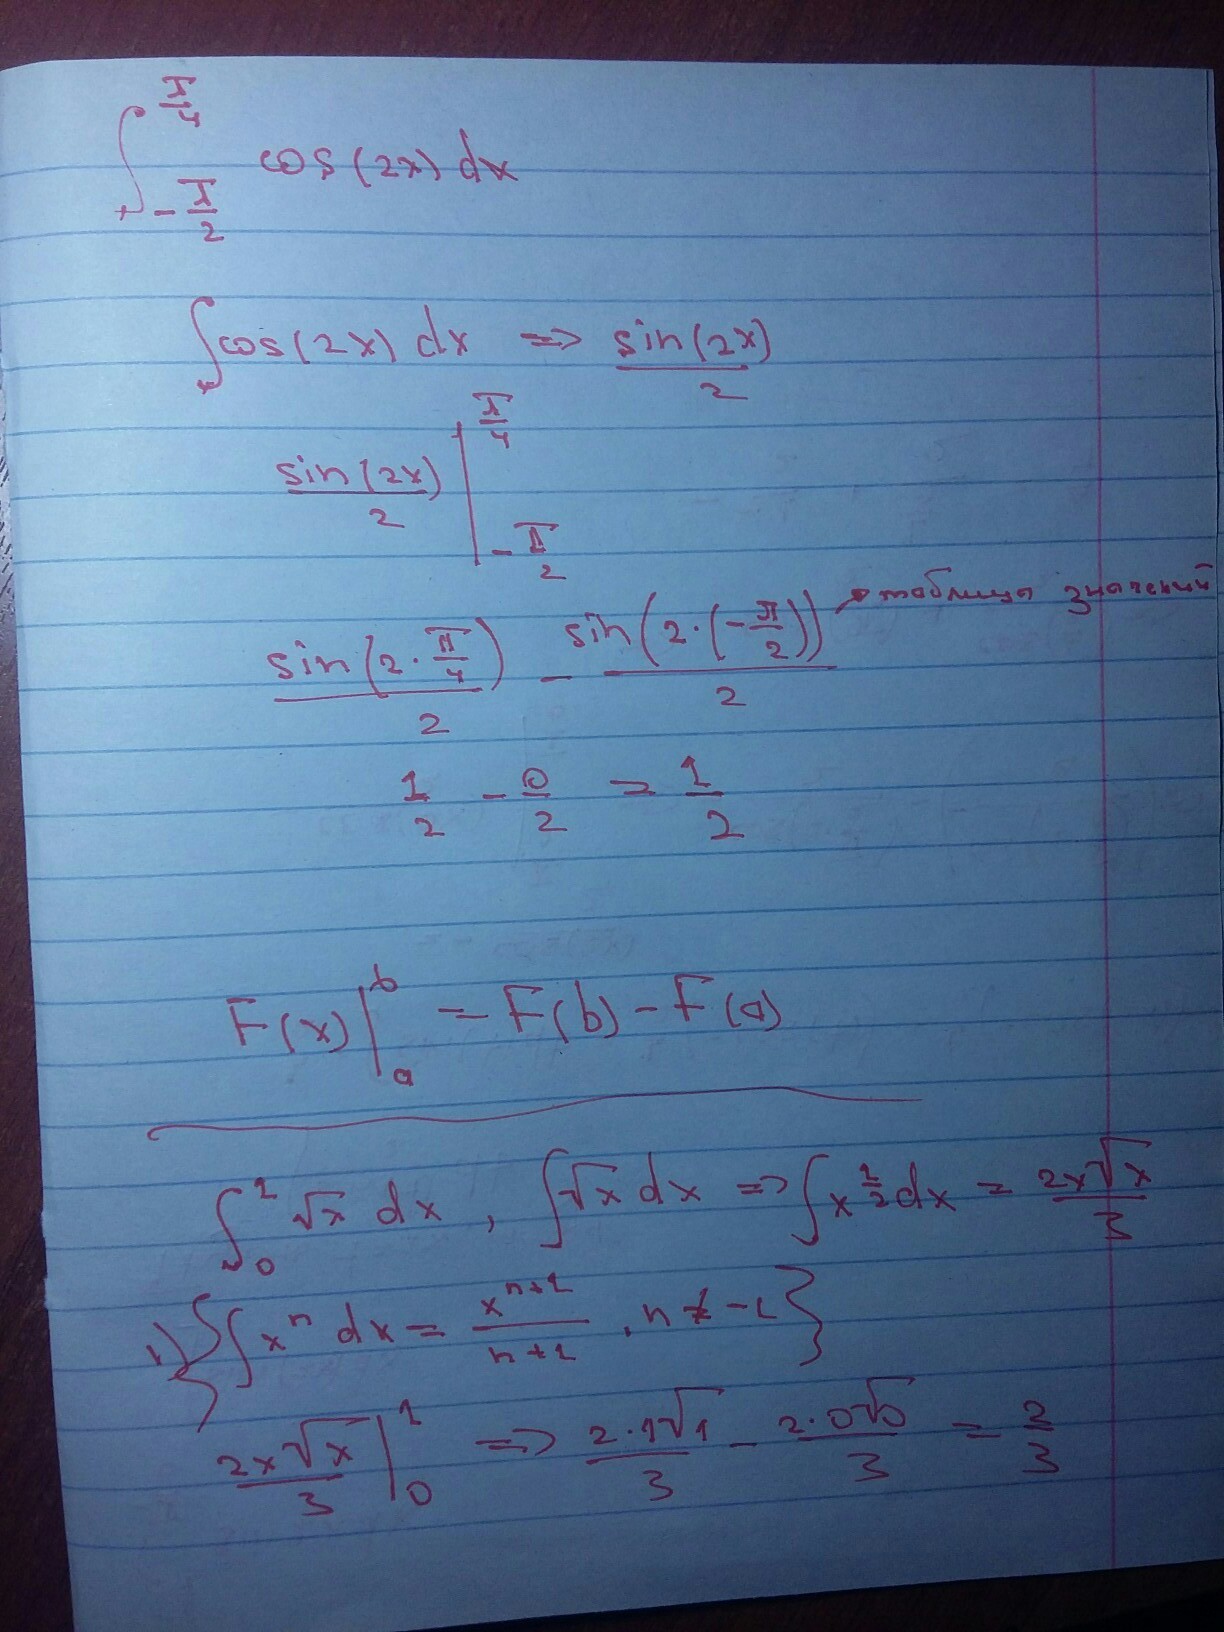 ∫_{-π/2}^{π/4} cos(2x) dx
∫cos(2x) dx => sin(2x)/2
sin(2x)/2 |_{-π/2}^{π/4}
sin(2·π/4)/2 - sin(2·(-π/2))/2 → таблицы значений
1/2 - 0/2 = 1/2
F(x)|_a^b = F(b) - F(a)
∫_0^1 √x dx, ∫√x dx => ∫x^{1/2} dx = 2x√x/3
1) {∫x^n dx = x^{n+1}/(n+1), n ≠ -1}
2x√x/3 |_0^1 => 2·1√1/3 - 2·0√0/3 = 2/3